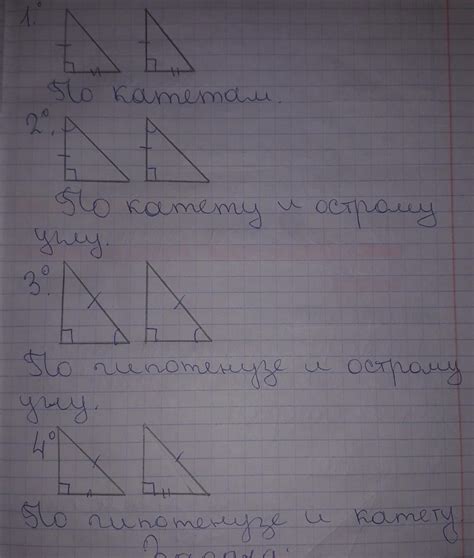 1.°
По катетам.
2°.
По катету и острому
углу.
3°.
По гипотенузе и острому
углу.
4°
По гипотенузе и катету
Задача.